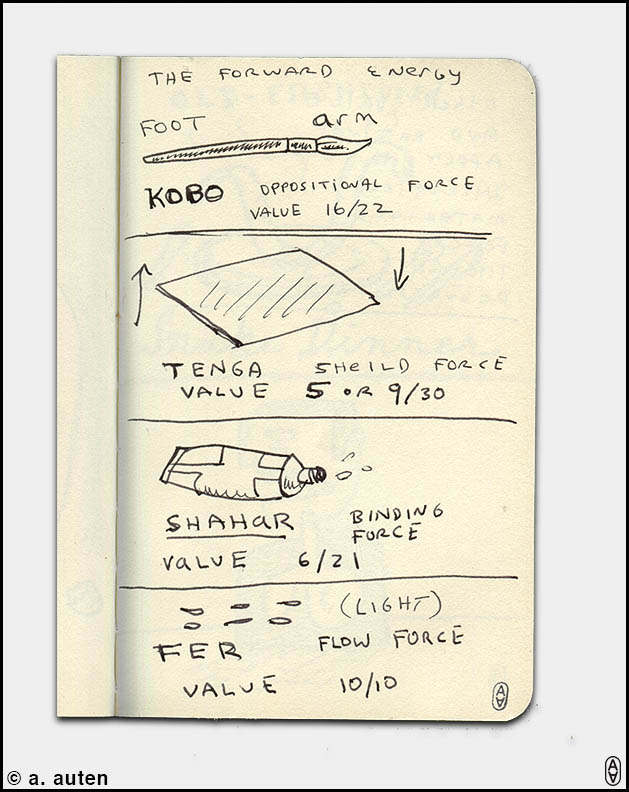 THE FORWARD ENERGY
FOOT arm
KOBO OPPOSITIONAL FORCE
VALUE 16/22
TENGA SHEILD FORCE
VALUE 5 OR 9/30
SHAHAR BINDING
FORCE
VALUE 6/21
(LIGHT)
FER FLOW FORCE
VALUE 10/10
© a. auten